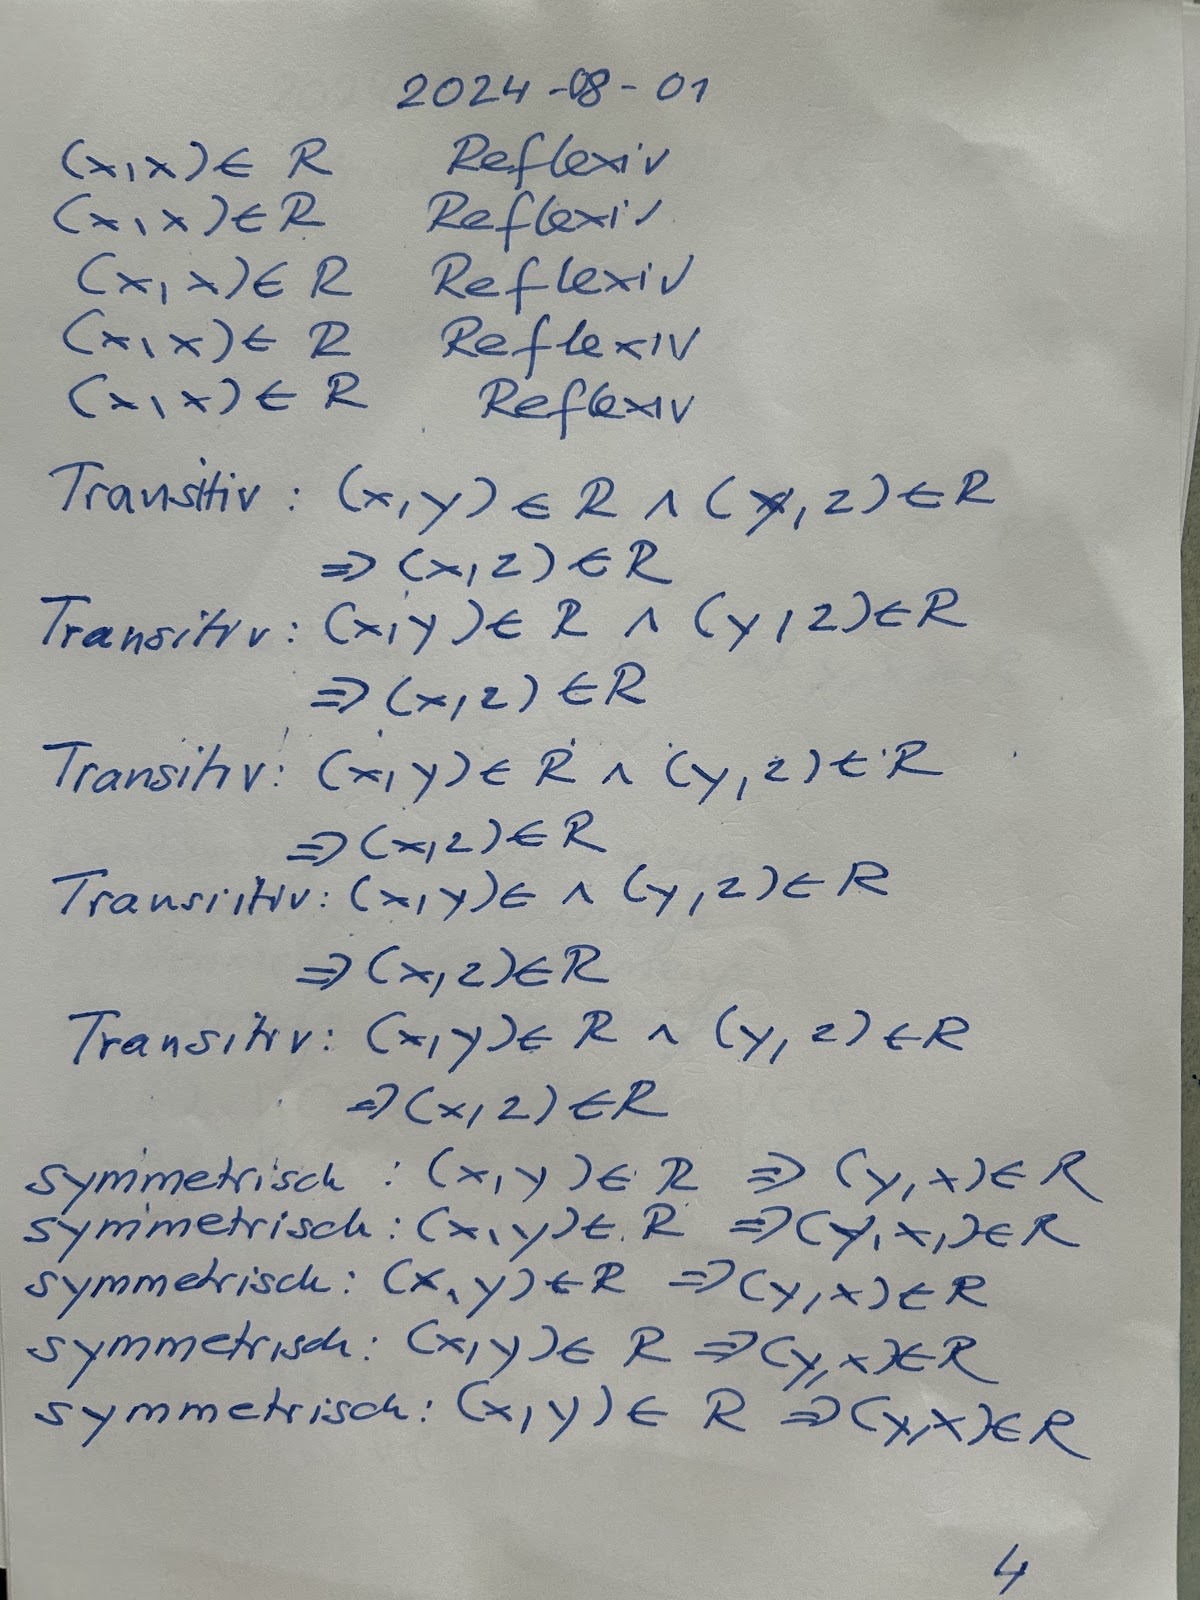 2024-08-01
(x,x) ∈ R Reflexiv
(x,x) ∈ R Reflexiv
(x,x) ∈ R Reflexiv
(x,x) ∈ R Reflexiv
(x,x) ∈ R Reflexiv
Transitiv : (x,y) ∈ R ∧ (y,z) ∈ R
⇒ (x,z) ∈ R
Transitiv : (x,y) ∈ R ∧ (y,z) ∈ R
⇒ (x,z) ∈ R
Transitiv : (x,y) ∈ R ∧ (y,z) ∈ R
⇒ (x,z) ∈ R
Transiitiv : (x,y) ∈ ∧ (y,z) ∈ R
⇒ (x,z) ∈ R
Transitiv : (x,y) ∈ R ∧ (y,z) ∈ R
⇒ (x,z) ∈ R
symmetrisch : (x,y) ∈ R ⇒ (y,x) ∈ R
symmetrisch : (x,y) ∈ R ⇒ (y,x,) ∈ R
symmetrisch : (x,y) ∈ R ⇒ (y,x) ∈ R
symmetrisch : (x,y) ∈ R ⇒ (y,x) ∈ R
symmetrisch : (x,y) ∈ R ⇒ (y,x) ∈ R
4